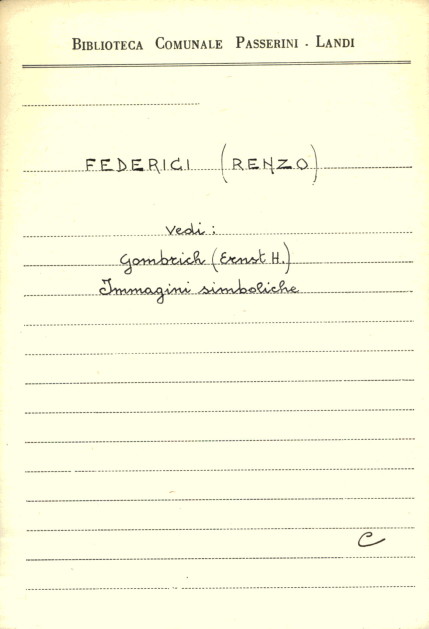 BIBLIOTECA COMUNALE PASSERINI - LANDI
FEDERICI (RENZO)
Vedi:
Gombrich (Ernst H.)
Immagini simboliche
C